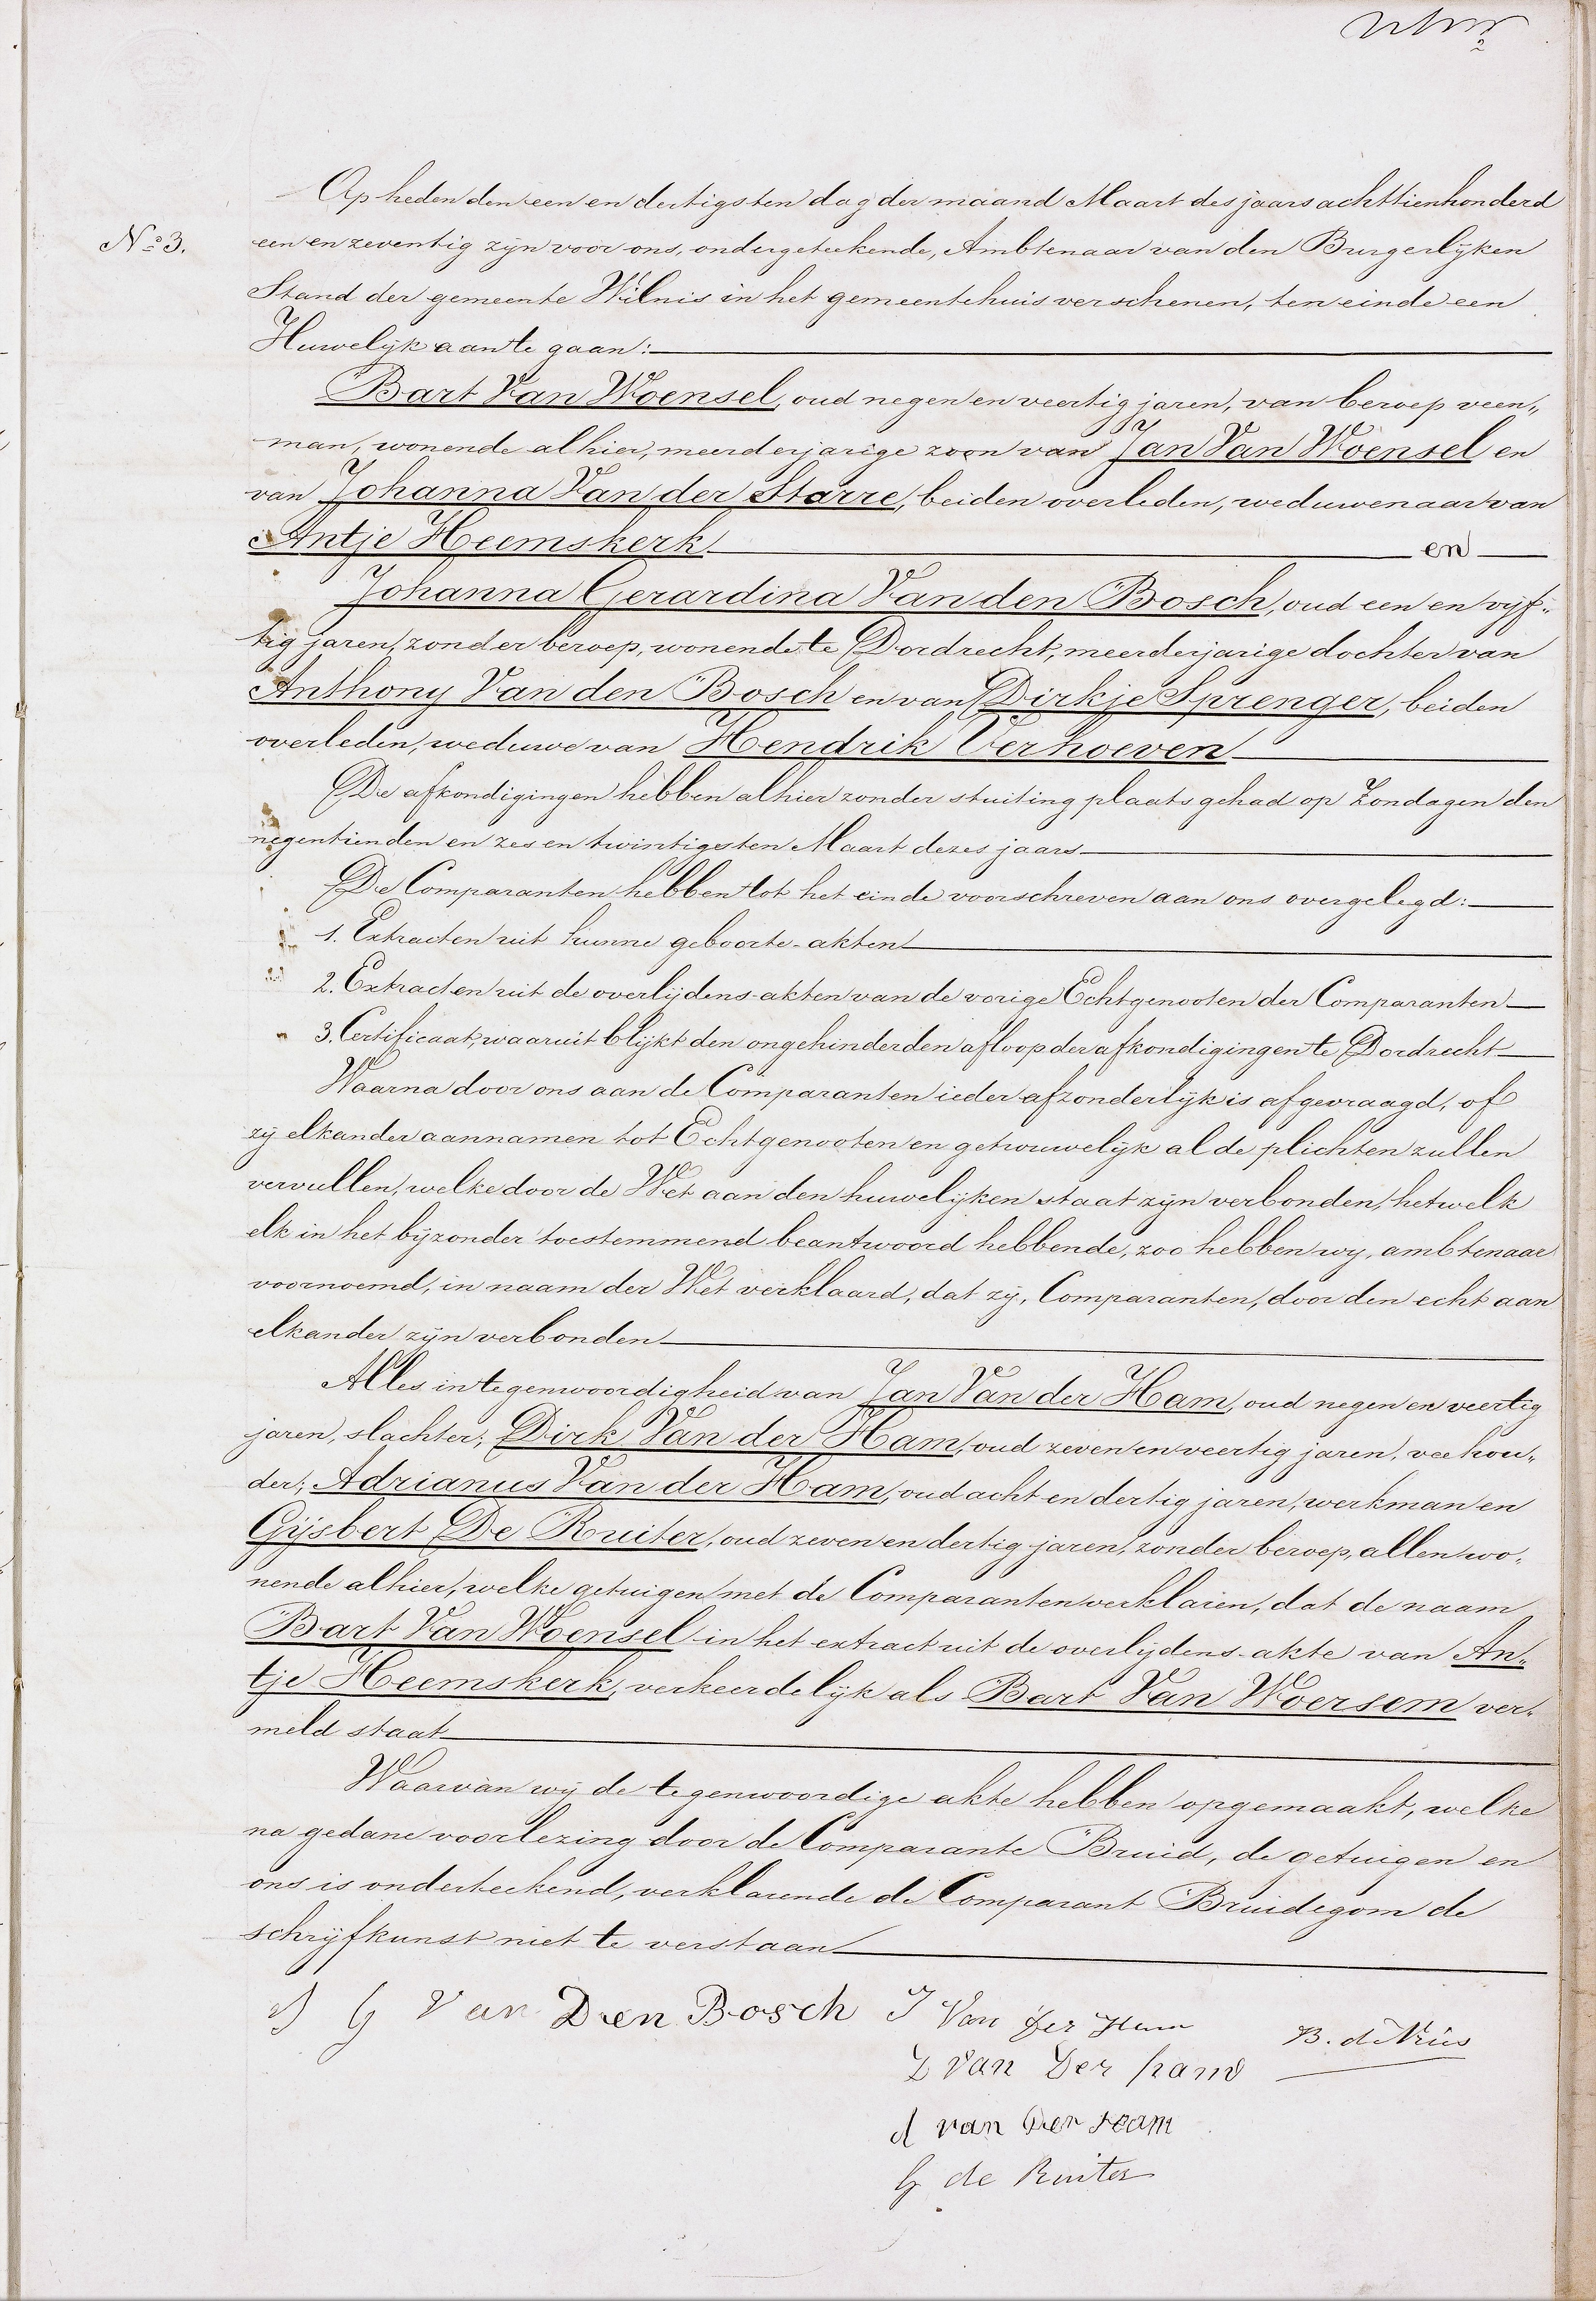 Op heden den een en dertigsten dag der maand Maart des jaars achttienhonderd
N.º 3. een en zeventig zijn voor ons, ondergeteekende, Ambtenaar van den Burgerlijken
Stand der gemeente Wilnis in het gemeentehuis verschenen, ten einde een
Huwelijk aan te gaan:
Bart Van Woensel, oud negen en veertig jaren, van beroep veen„
man, wonende alhier, meerderjarige zoon van Jan Van Woensel en
van Johanna Van der Starre, beiden overleden, weduwenaar van
Antje Heemskerk en
Johanna Gerardina Van den Bosch, oud een en vijf„
tig jaren, zonder beroep, wonende te Dordrecht, meerderjarige dochter van
Anthony Van den Bosch en van Dirkje Sprenger, beiden
overleden, weduwe van Hendrik Verhoeven
De afkondigingen hebben alhier zonder stuiting plaats gehad op Zondagen den
negentienden en zes en twintigsten Maart dezes jaars
De Comparanten hebben tot het einde voorschreven aan ons overgelegd:
1. Extracten uit hunne geboorte-akten
2. Extracten uit de overlijdens-akten van de vorige Echtgenooten der Comparanten
3. Certificaat, waaruit blijkt den ongehinderden afloop der afkondigingen te Dordrecht
Waarna door ons aan de Comparanten ieder afzonderlijk is afgevraagd, of
zij elkander aannamen tot Echtgenooten en getrouwelijk al de plichten zullen
vervullen, welke door de Wet aan den huwelijken staat zijn verbonden, hetwelk
elk in het bijzonder toestemmend beantwoord hebbende, zoo hebben wij, ambtenaar
voornoemd, in naam der Wet verklaard, dat zij, Comparanten, door den echt aan
elkander zijn verbonden
Alles in tegenwoordigheid van Jan Van der Ham, oud negen en veertig
jaren, slachter; Dirk Van der Ham, oud zeven en veertig jaren, veehou„
der; Adrianus Van der Ham, oud acht en dertig jaren, werkman en
Gijsbert De Ruiter, oud zeven en dertig jaren, zonder beroep, allen wo„
nende alhier, welke getuigen met de Comparanten verklaren, dat de naam
Bart Van Woensel in het extract uit de overlijdens-akte van An„
tje Heemskerk, verkeerdelijk als Bart Van Woersem ver„
meld staat
Waarvan wij de tegenwoordige akte hebben opgemaakt, welke
na gedane voorlezing door de Comparante Bruid, de getuigen en
ons is onderteekend, verklarende de Comparant Bruidegom de
schrijfkunst niet te verstaan
J G Van Den Bosch J Van der Ham
B. de Vries
D Van Der Ham
A van der Ham
G de Ruiter